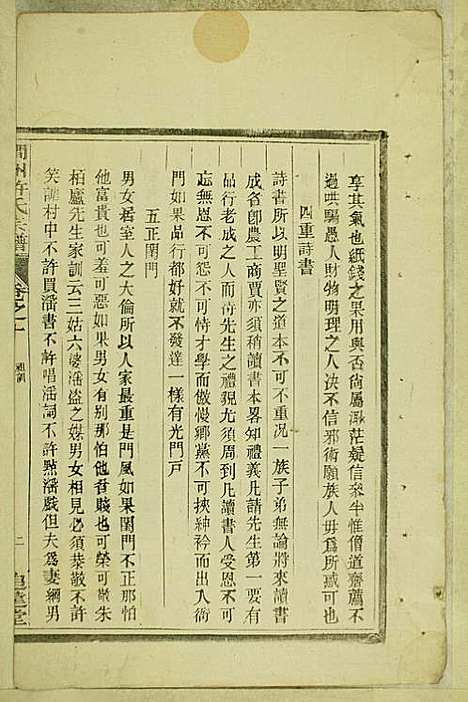 享其氣也紙錢之果用與否尚屬渺茫疑信參半惟僧道齋薦不
過哄騙愚人財物明理之人决不信邪術願族人毋爲所惑可也
四重詩書
詩書所以明聖賢之道本不可不重况一族子弟無論將來讀書
成名卽農工商賈亦須稍讀書本畧知禮義凡請先生第一要有
品行老成之人而待先生之禮貌尤須周到凡讀書人受恩不可
忘無恩不可怨不可恃才學而傲慢鄉黨不可挾紳衿而出入衙
門如果品行都好就不發達一樣有光門戶
五正閨門
男女居室人之大倫所以人家最重是門風如果閨門不正那怕
他富貴也可羞可惡如果男女有别那怕他貧賤也可榮可敬朱
柏廬先生家訓云三姑六婆淫盜之媒男女相見必須恭敬不許
笑謔村中不許買淫書不許唱淫詞不許點淫戲但夫爲妻綱男
州許氏宗譜
卷之一
二
堂